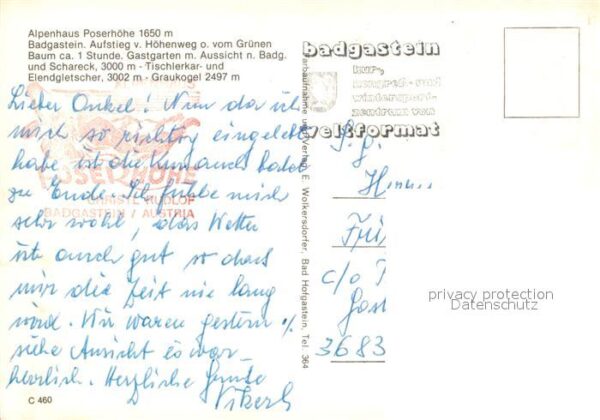 Alpenhaus Poserhöhe 1650 m
Badgastein. Aufstieg v. Höhenweg o. vom Grünen
Baum ca. 1 Stunde. Gastgarten m. Aussicht n. Badg.
und Schareck, 3000 m - Tischlerkar- und
Elendgletscher, 3002 m - Graukogel 2497 m
Lieber Onkel! Nun da ich
mich so richtig eingelebt
habe ist die
zu Ende. Ich fühle mich
sehr wohl, das Wetter
ist auch gut so dass
mir die Zeit nie lang
wird. Wir waren gestern
siehe Ansicht es war
herrlich. Herzliche Grüße
POSERHÖHE
CHRISTL RUDLOF
BADGASTEIN / AUSTRIA
C 460
Farbaufnahme und Verlag E. Wolkersdorfer, Bad Hofgastein, Tel. 364
badgastein
kur-,
kongreß- und
wintersport-
zentrum von
weltformat
c/o
3683
privacy protection
Datenschutz